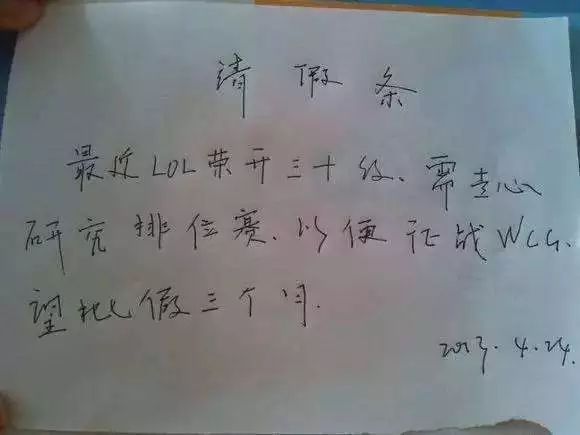 请假条
最近LOL荣升三十级、需专心
研究排位赛、以便征战WCG、
望批假三个月.
2013.4.24.